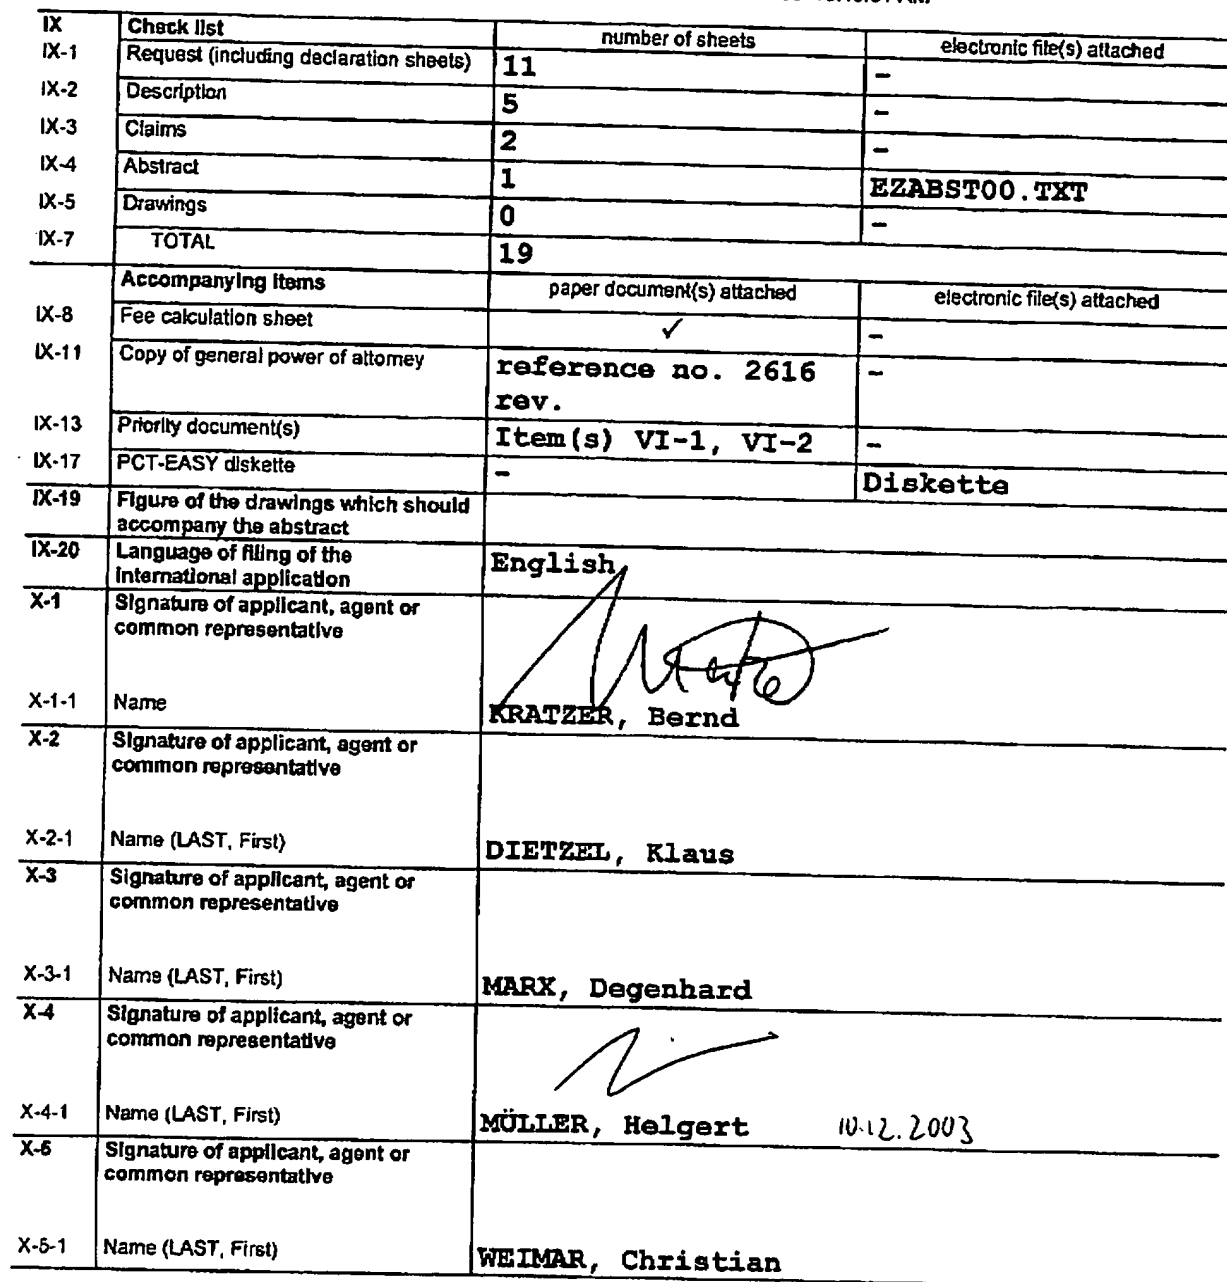 IX Check list number of sheets electronic file(s) attached
IX-1 Request (including declaration sheets) 11 –
IX-2 Description 5 –
IX-3 Claims 2 –
IX-4 Abstract 1 EZABST00.TXT
IX-5 Drawings 0 –
IX-7 TOTAL 19
Accompanying items paper document(s) attached electronic file(s) attached
IX-8 Fee calculation sheet ✓ –
IX-11 Copy of general power of attorney reference no. 2616 –
rev.
IX-13 Priority document(s) Item(s) VI-1, VI-2 –
IX-17 PCT-EASY diskette – Diskette
IX-19 Figure of the drawings which should
accompany the abstract
IX-20 Language of filing of the English
international application
X-1 Signature of applicant, agent or
common representative
X-1-1 Name KRATZER, Bernd
X-2 Signature of applicant, agent or
common representative
X-2-1 Name (LAST, First) DIETZEL, Klaus
X-3 Signature of applicant, agent or
common representative
X-3-1 Name (LAST, First) MARX, Degenhard
X-4 Signature of applicant, agent or
common representative
X-4-1 Name (LAST, First) MÜLLER, Helgert 10.12.2003
X-5 Signature of applicant, agent or
common representative
X-5-1 Name (LAST, First) WEIMAR, Christian